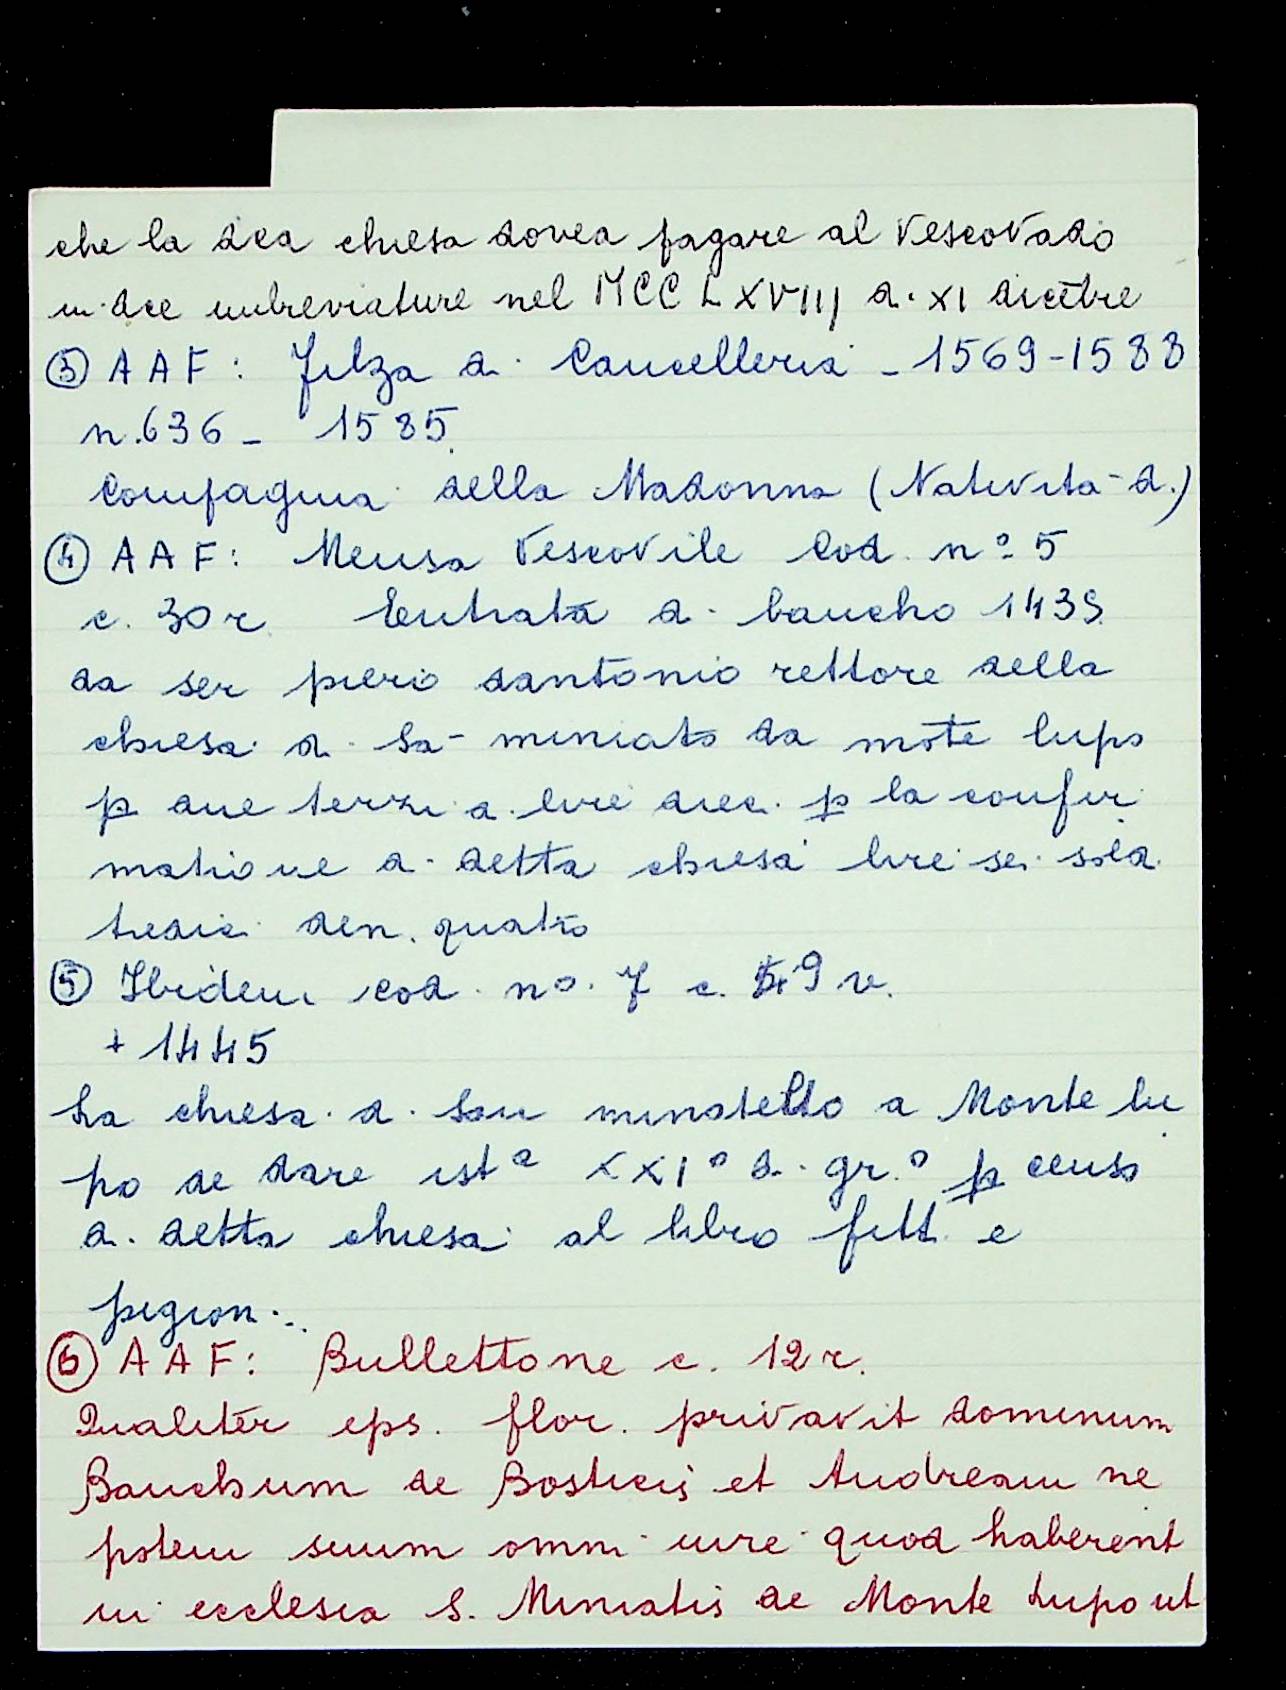 che la dca chiesa dovea pagare al Vescovado
in dce imbreviature nel MCCLXVIII a. XI dicēbre
③ AAF: Filza di Cancelleria - 1569-1588
n. 636 - 1585
Compagnia della Madonna (Natività d.)
④ AAF: Mensa Vescovile Cod. nº 5
c. 30 r. Entrata di bancho 1439
da ser piero dantonio rettore della
chiesa di Sā miniato da mōte lupo
p due terzi di lire dieci p la confir
matione di detta chiesa lire sei soldi
tredici den. quatro
⑤ Ibidem cod. nº. 7 c. 49 v.
+ 1445
La chiesa di San miniatello a Monte lu
po de dare ist^a XXIº d. gr.º p censo
di detta chiesa al libro fitti e
pigion...
⑥ AAF: Bullettone c. 12 r.
Qualitēr eps. flor. privavit dominum
Banchum de Bosticis et Andream ne
potem suum omni iure quod haberent
in ecclesia S. Miniatis de Monte Lupo ut